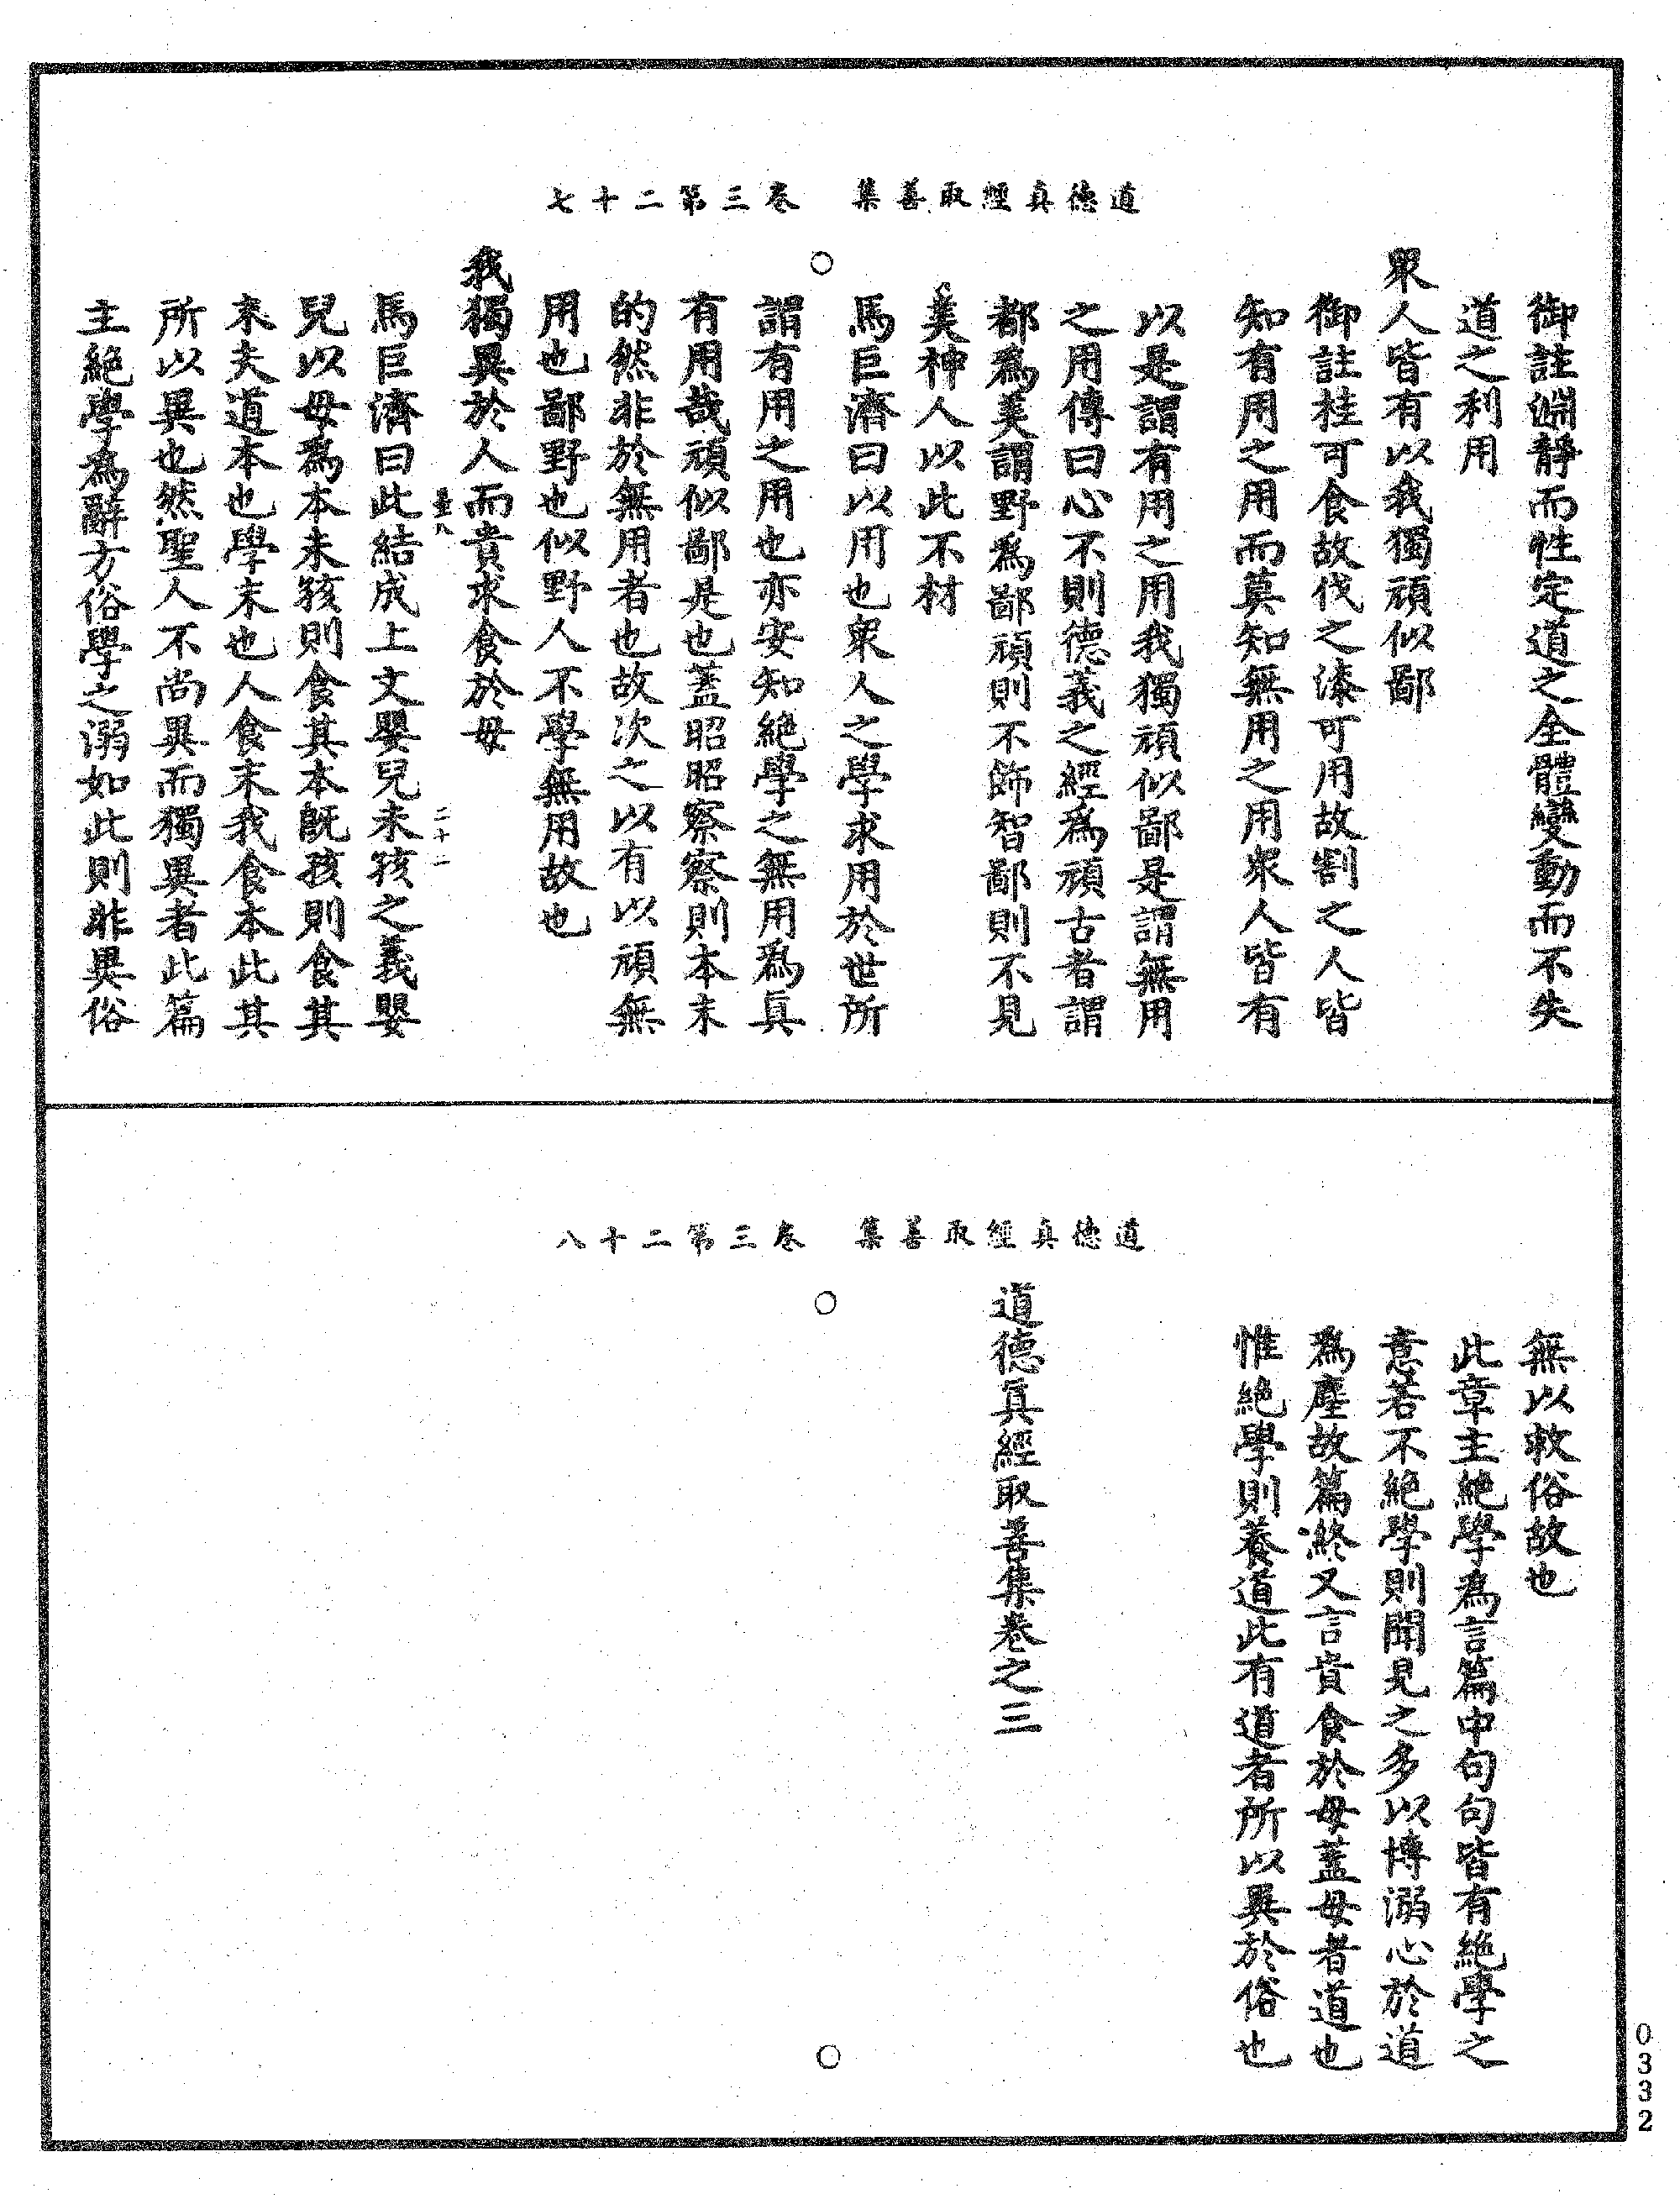 道德真經取善集　卷三第二十七
御註淵靜而性定道之全體變動而不失
道之利用
衆人皆有以我獨頑似鄙
御註桂可食故伐之漆可用故割之人皆
知有用之用而莫知無用之用衆人皆有
以是謂有用之用我獨頑似鄙是謂無用
之用傳曰心不則德義之經爲頑古者謂
都爲美謂野爲鄙頑則不飾智鄙則不見
美神人以此不材
馬巨濟曰以用也衆人之學求用於世所
謂有用之用也亦安知絶學之無用爲眞
有用哉頑似鄙是也蓋昭昭察察則本末
的然非於無用者也故次之以有以頑無
用也鄙野也似野人不學無用故也
我獨異於人而貴求食於母
二十一
馬巨濟曰此結成上文嬰兒未孩之義嬰
兒以母爲本未孩則食其本旣孩則食其
末夫道本也學末也人食末我食本此其
所以異也然聖人不尚異而獨異者此篇
主絶學爲辭方俗學之溺如此則非異俗
道德真經取善集　卷三第二十八
無以救俗故也
此章主絶學爲言篇中句句皆有絶學之
意若不絶學則聞見之多以博溺心於道
爲塵故篇終又言貴食於母蓋母者道也
惟絶學則養道此有道者所以異於俗也
道德眞經取善集卷之三
0332